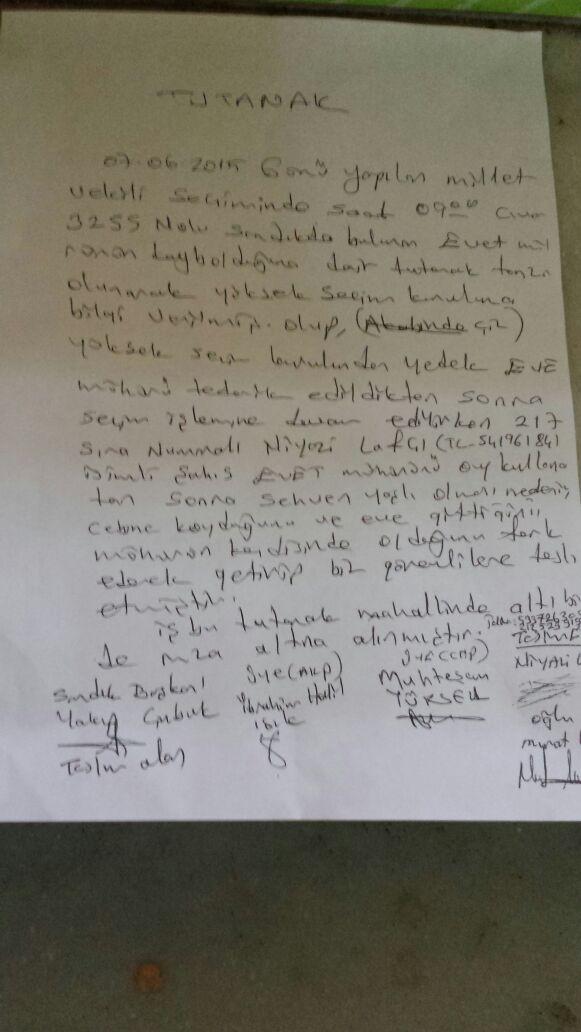 TUTANAK
07.06.2015 Günü yapılan millet
vekili Seçiminde saat 09:00
3255 Nolu Sandıkda bulunan Evet mü
nün kaybolduğuna dair tutanak tanzi
olunarak yüksek Seçim kuruluna
bilgi verilmiş. olup,
yüksek seçim kurulundan yedek EVE
mühürü tedarik edildikten sonra
seçim işlemine devam edilirken 217
Sıra Numaralı Niyazi LafÇı (TC-541961841
isimli Şahıs EVET mühürünü oy kullanı
tan sonra sehven yaşlı olması nedeni
cebine koyduğunu ve eve gittiğini
mühürün kendisinde olduğunu fark
ederek getirip biz görevlilere tesli
etmiştir.
iş bu tutanak mahallinde altı bi
de imza altına alınmıştır.
Sandık Başkanı üye(AKP) üye(CHP)
Yakup İbrahim Halil Muhteşem NİYAZİ
YÜKSEL
oğlu
Teslim alan murat